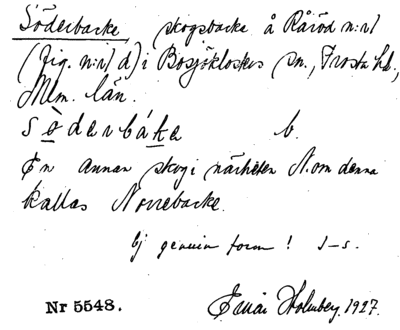 Söderbacke, skogsbacke å Råröd n:r 1
(Fig. n:r 1 d) i Bosjöklosters sn., Frosta hd.,
Mlm. län.
sǒ̀derbáke b.
En annan skog i närheten N. om denna
kallas Norrebacke.
Ej genuin form! J-s.
Nr 5548. Holmberg. 1927.